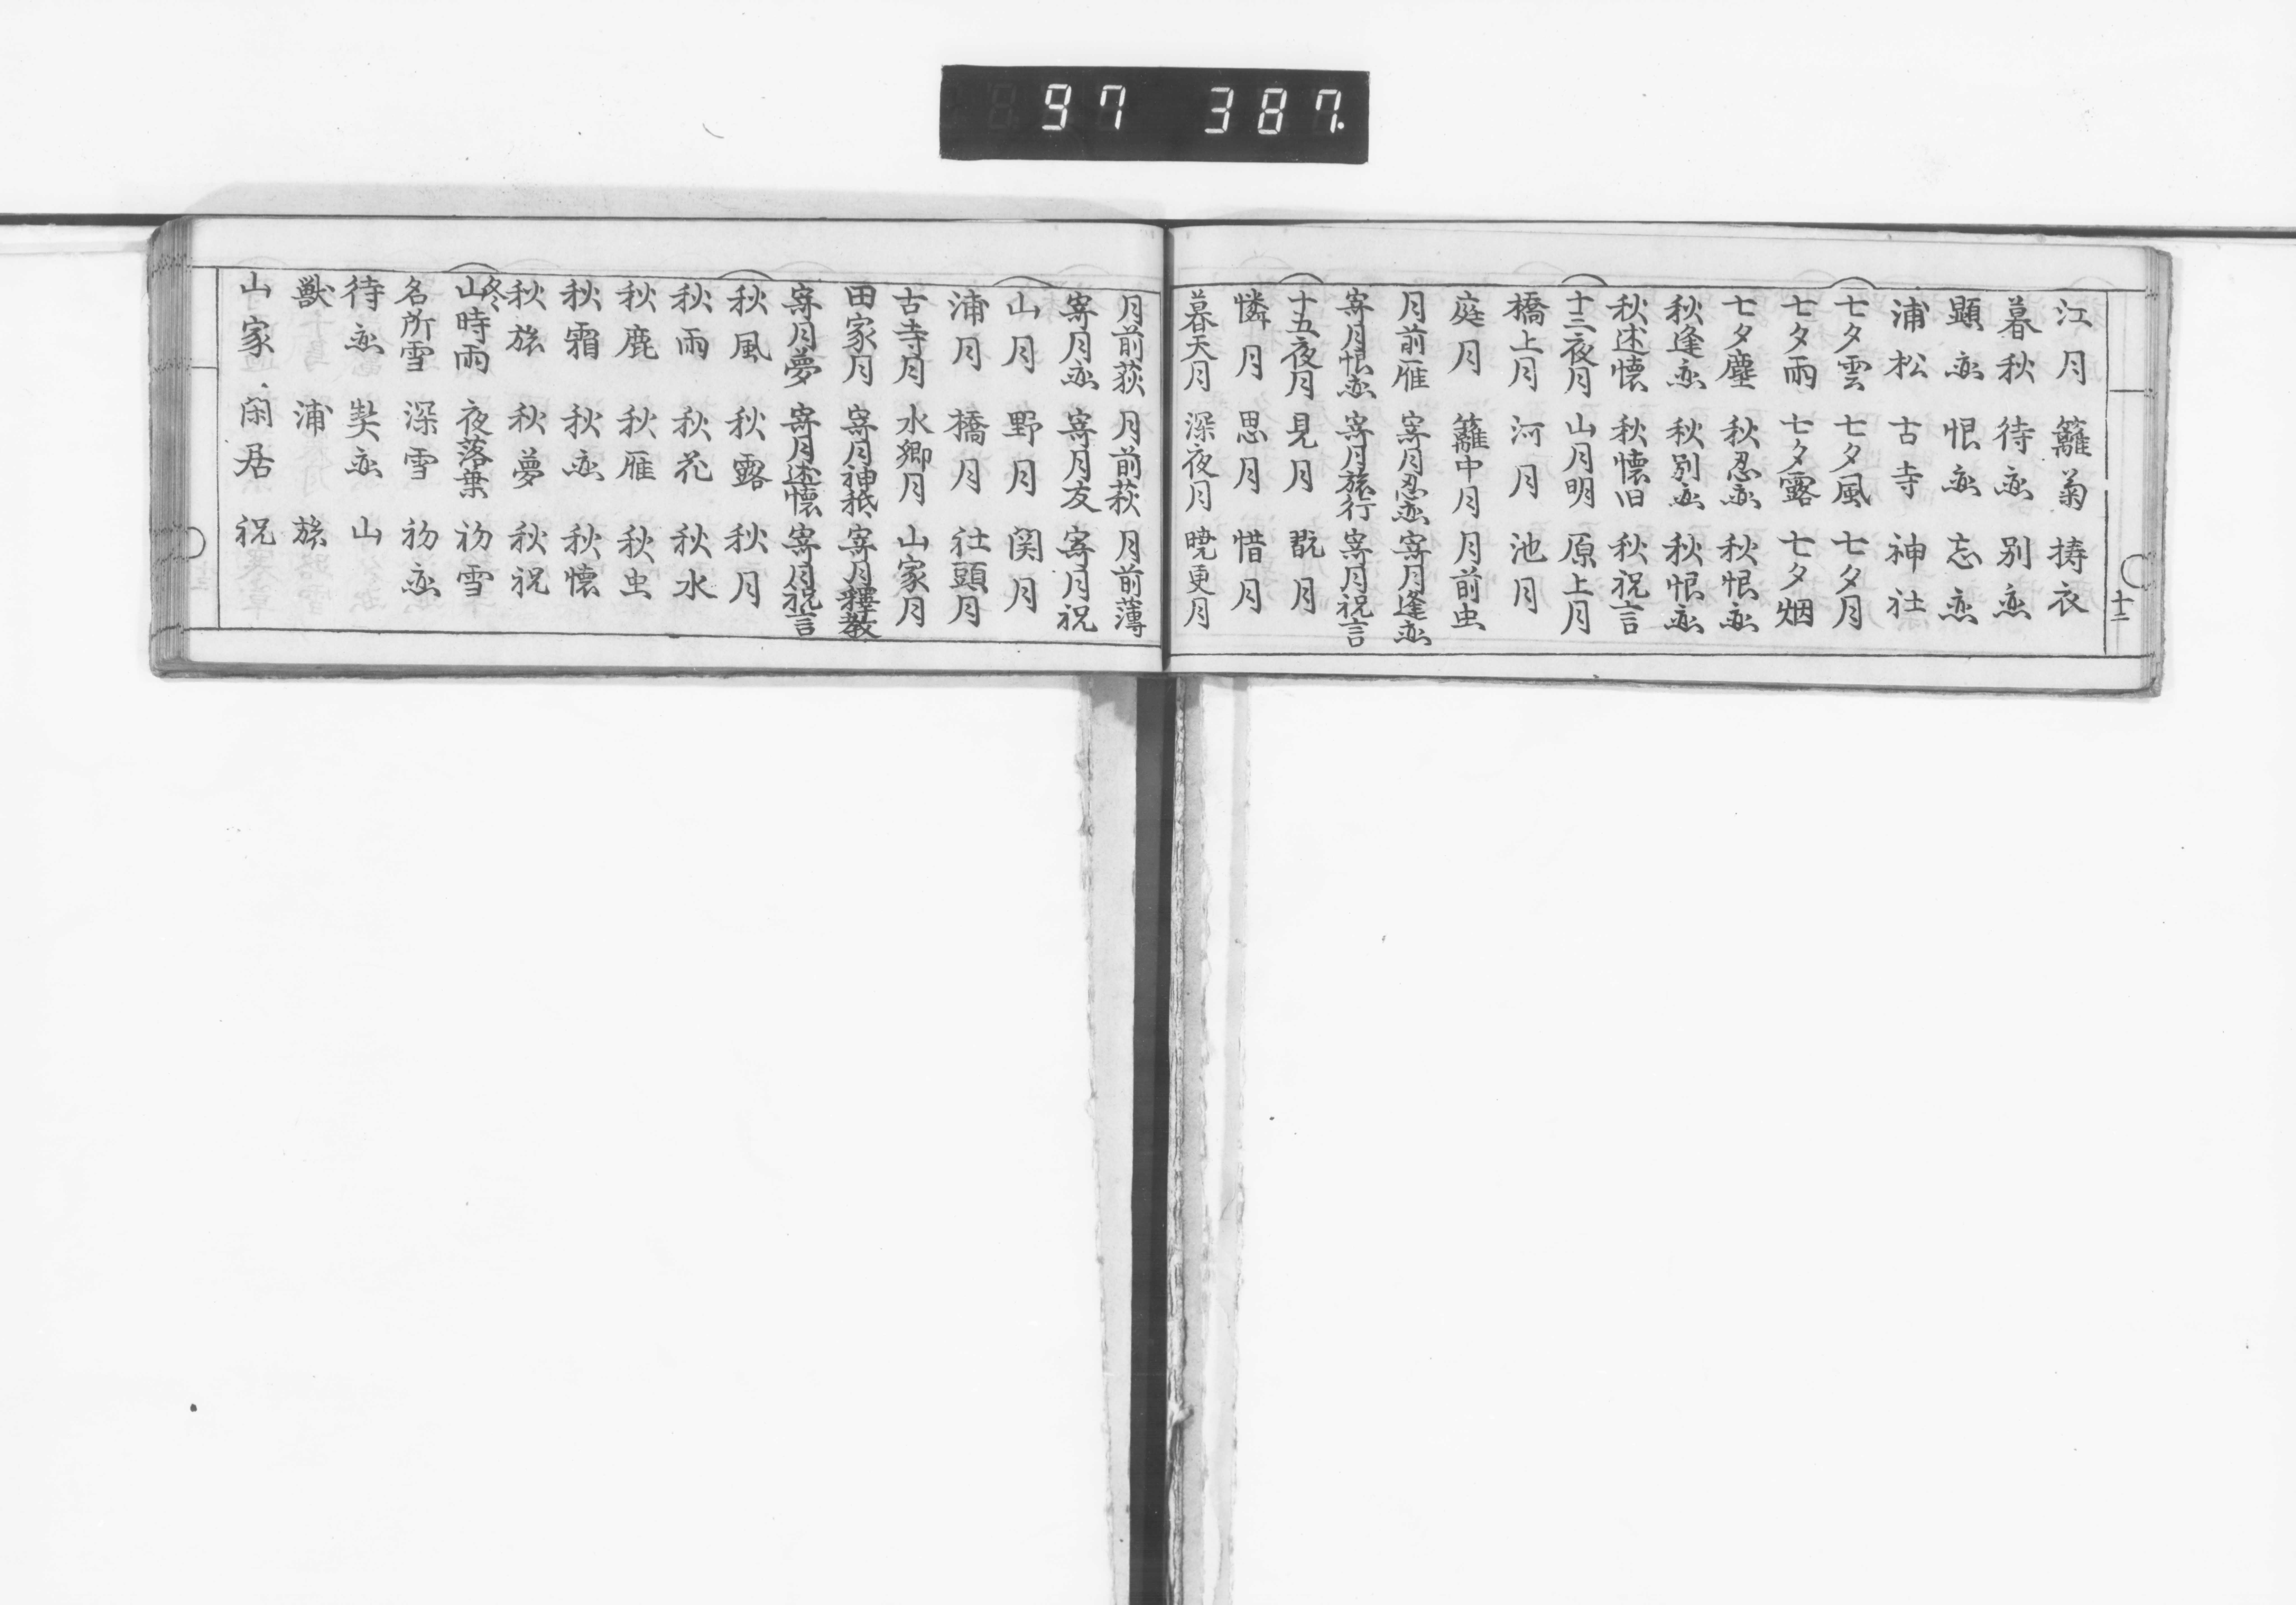 97 387.
十二
江月 籬菊 擣衣
暮秋 待恋 別恋
顕恋 恨恋 忘恋
浦松 古寺 神社
七夕雲 七夕風 七夕月
七夕雨 七夕露 七夕烟
七夕塵 秋忍恋 秋恨恋
秋逢恋 秋別恋 秋恨恋
秋述懐 秋懐旧 秋祝言
十三夜月 山月明 原上月
橋上月 河月 池月
庭月 籬中月 月前虫
月前雁 寄月忍恋 寄月逢恋
寄月恨恋 寄月旅行 寄月祝言
十五夜月 見月 翫月
憐月 思月 惜月
暮天月 深夜月 暁更月
月前荻 月前萩 月前薄
寄月恋 寄月友 寄月祝
山月 野月 関月
浦月 橋月 社頭月
古寺月 水郷月 山家月
田家月 寄月神祇 寄月釋教
寄月夢 寄月述懐 寄月祝言
秋風 秋露 秋月
秋雨 秋花 秋水
秋鹿 秋雁 秋虫
秋霜 秋恋 秋懐
秋旅 秋夢 秋祝
冬
山時雨 夜落葉 初雪
名所雪 深雪 初恋
待恋 契恋 山
獣 浦 旅
山家 閑居 祝